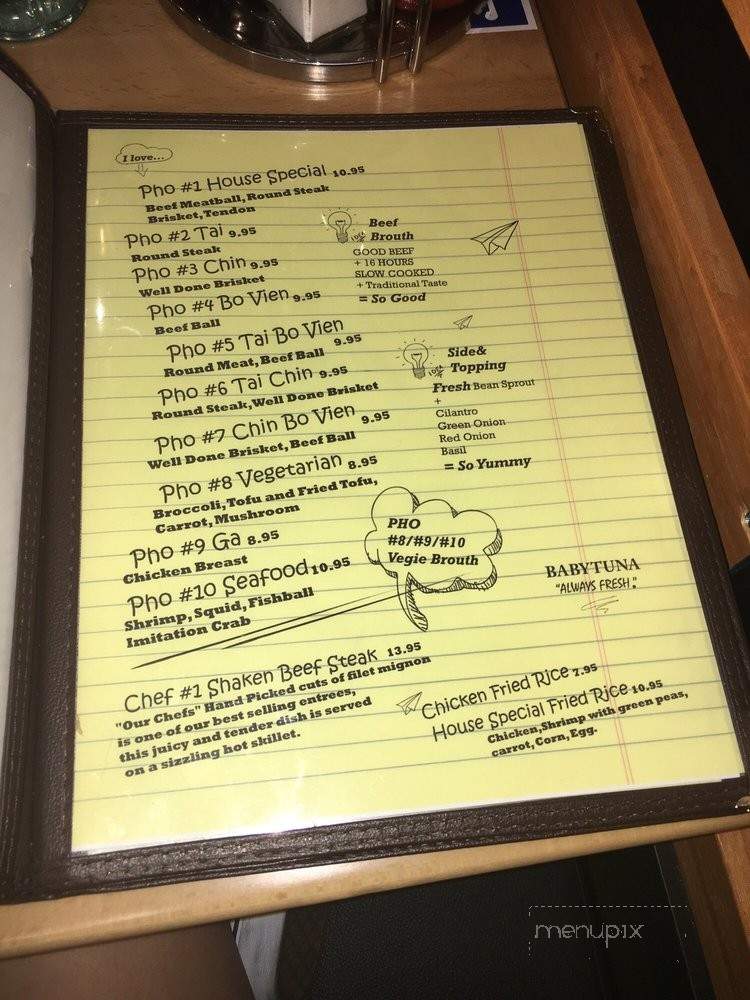 I love...
Pho #1 House Special 10.95
Beef Meatball, Round Steak
Brisket, Tendon
Pho #2 Tai 9.95
Round Steak
Pho #3 Chin 9.95
Well Done Brisket
Pho #4 Bo Vien 9.95
Beef Ball
Pho #5 Tai Bo Vien
Round Meat, Beef Ball 9.95
Pho #6 Tai Chin 9.95
Round Steak, Well Done Brisket
Pho #7 Chin Bo Vien 9.95
Well Done Brisket, Beef Ball
Pho #8 Vegetarian 8.95
Broccoli, Tofu and Fried Tofu,
Carrot, Mushroom
Pho #9 Ga 8.95
Chicken Breast
Pho #10 Seafood 10.95
Shrimp, Squid, Fishball
Imitation Crab
Beef
Brouth
GOOD BEEF
+ 16 HOURS
SLOW COOKED
+ Traditional Taste
= So Good
Side&
Topping
Fresh Bean Sprout
+
Cilantro
Green Onion
Red Onion
Basil
= So Yummy
PHO
#8/#9/#10
Vegie Brouth
BABYTUNA
"ALWAYS FRESH."
Chef #1 Shaken Beef Steak 13.95
"Our Chefs" Hand Picked cuts of filet mignon
is one of our best selling entrees,
this juicy and tender dish is served
on a sizzling hot skillet.
Chicken Fried Rice 7.95
House Special Fried Rice 10.95
Chicken, Shrimp with green peas,
carrot, Corn, Egg.
menupix